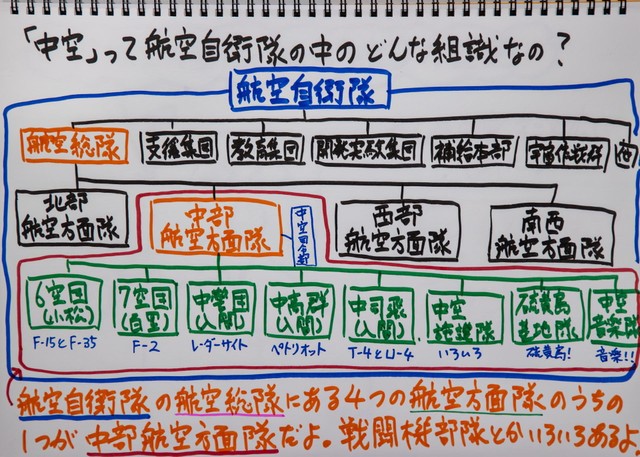 「中空」って航空自衛隊の中のどんな組識なの？
航空自衛隊
航空総隊
支援集団
教育集団
開発実験集団
補給本部
宇宙作戦群
他
北部
航空方面隊
中部
航空方面隊
中空司令部
西部
航空方面隊
南西
航空方面隊
6空団
(小松)
F-15とF-35
7空団
(百里)
F-2
中警団
(入間)
レーダーサイト
中高群
(入間)
ペトリオット
中司飛
(入間)
T-4とU-4
中空
施設隊
いろいろ
硫黄島
基地隊
硫黄島!
中空
音楽隊
音楽!!
航空自衛隊の航空総隊にある4つの航空方面隊のうちの
1つが中部航空方面隊だよ。戦闘機部隊とかいろいろあるよ